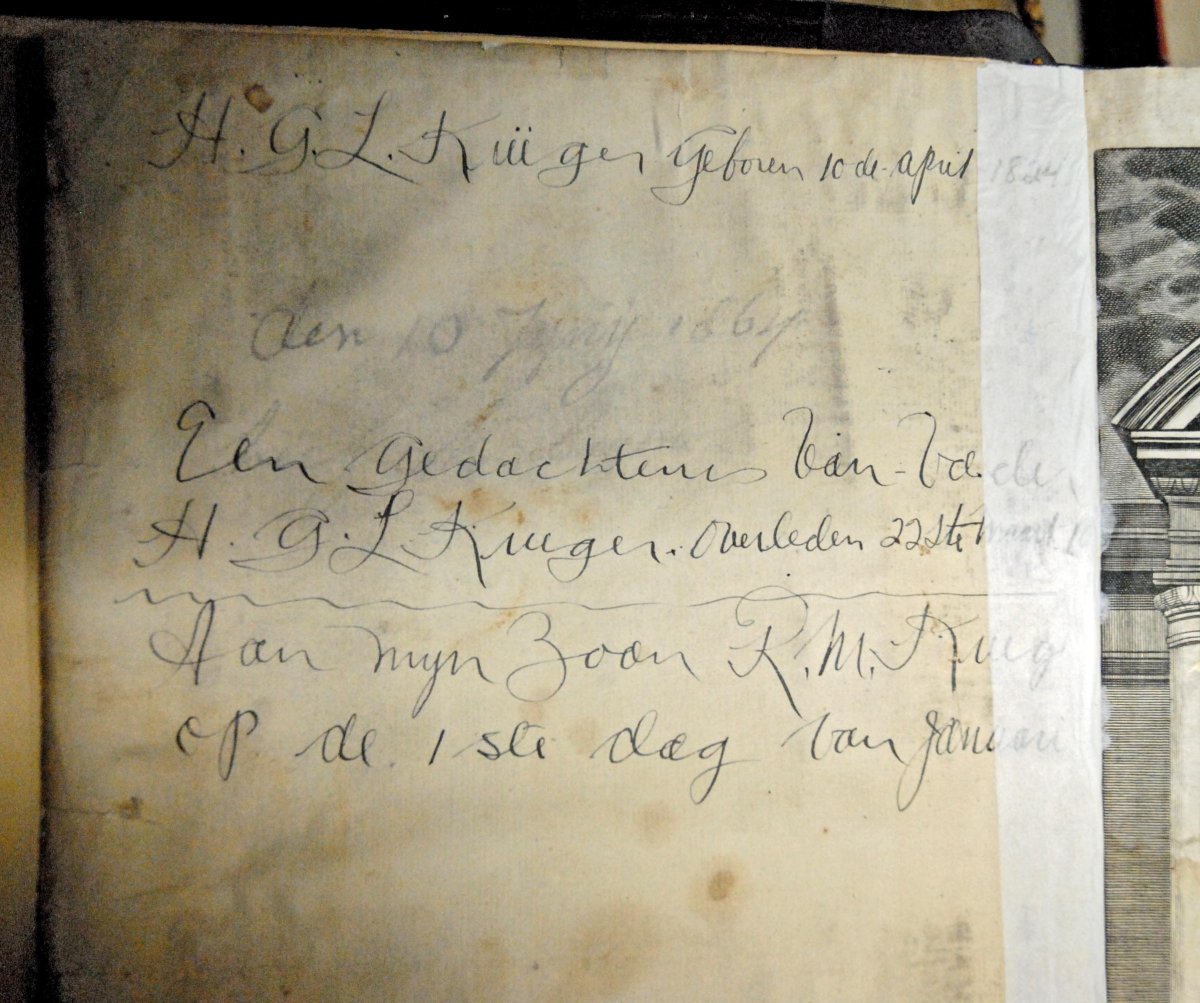 H. G. L. Krüger Geboren 10 de. april
den 10 Junij 1864
Een Gedachtenis Van Vader
H. G. L Krueger. Overleden 22 ste maart
Aan myn Zoon R. M. Krug
op de 1 ste dag van Januari